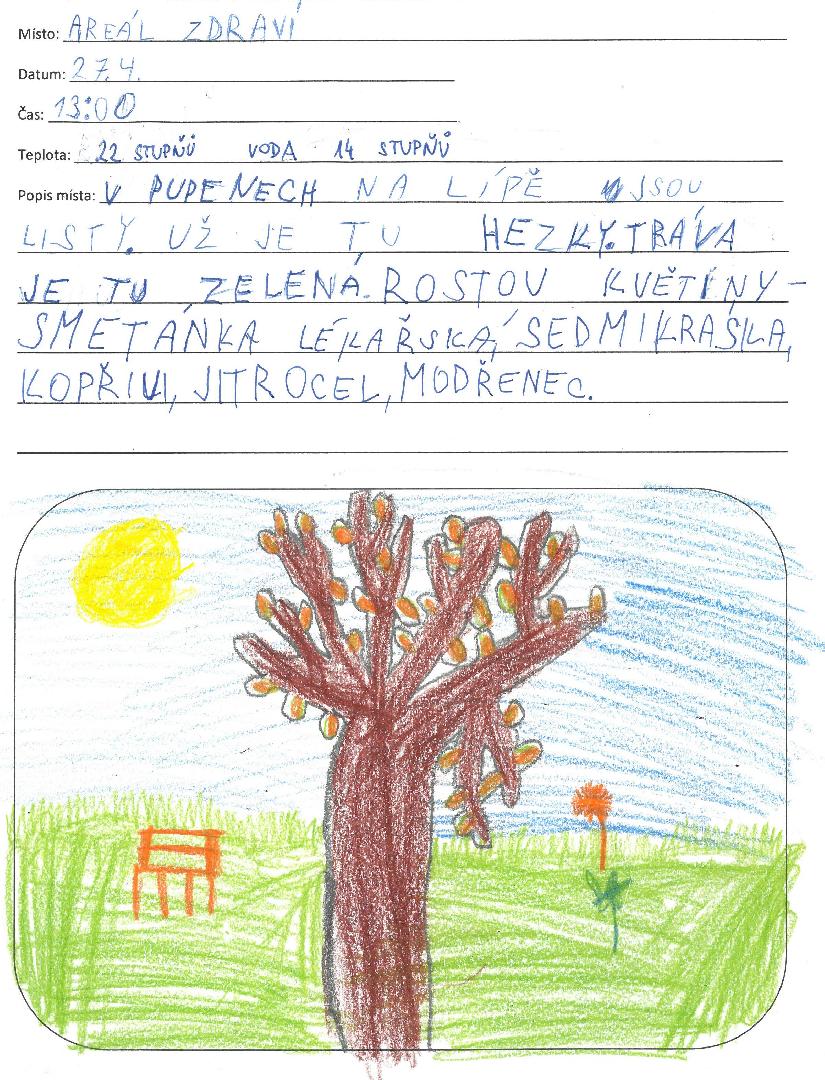 Místo: AREÁL ZDRAVÍ
Datum: 27.4.
Čas: 13:00
Teplota: 22 STUPŇŮ VODA 14 STUPŇŮ
Popis místa: V PUPENECH NA LÍPĚ JSOU
LISTY. UŽ JE TU HEZKY. TRÁVA
JE TU ZELENÁ. ROSTOU KVĚTINY -
SMETÁNKA LÉKAŘSKÁ, SEDMIKRÁSKA,
KOPŘIVI, JITROCEL, MODŘENEC.